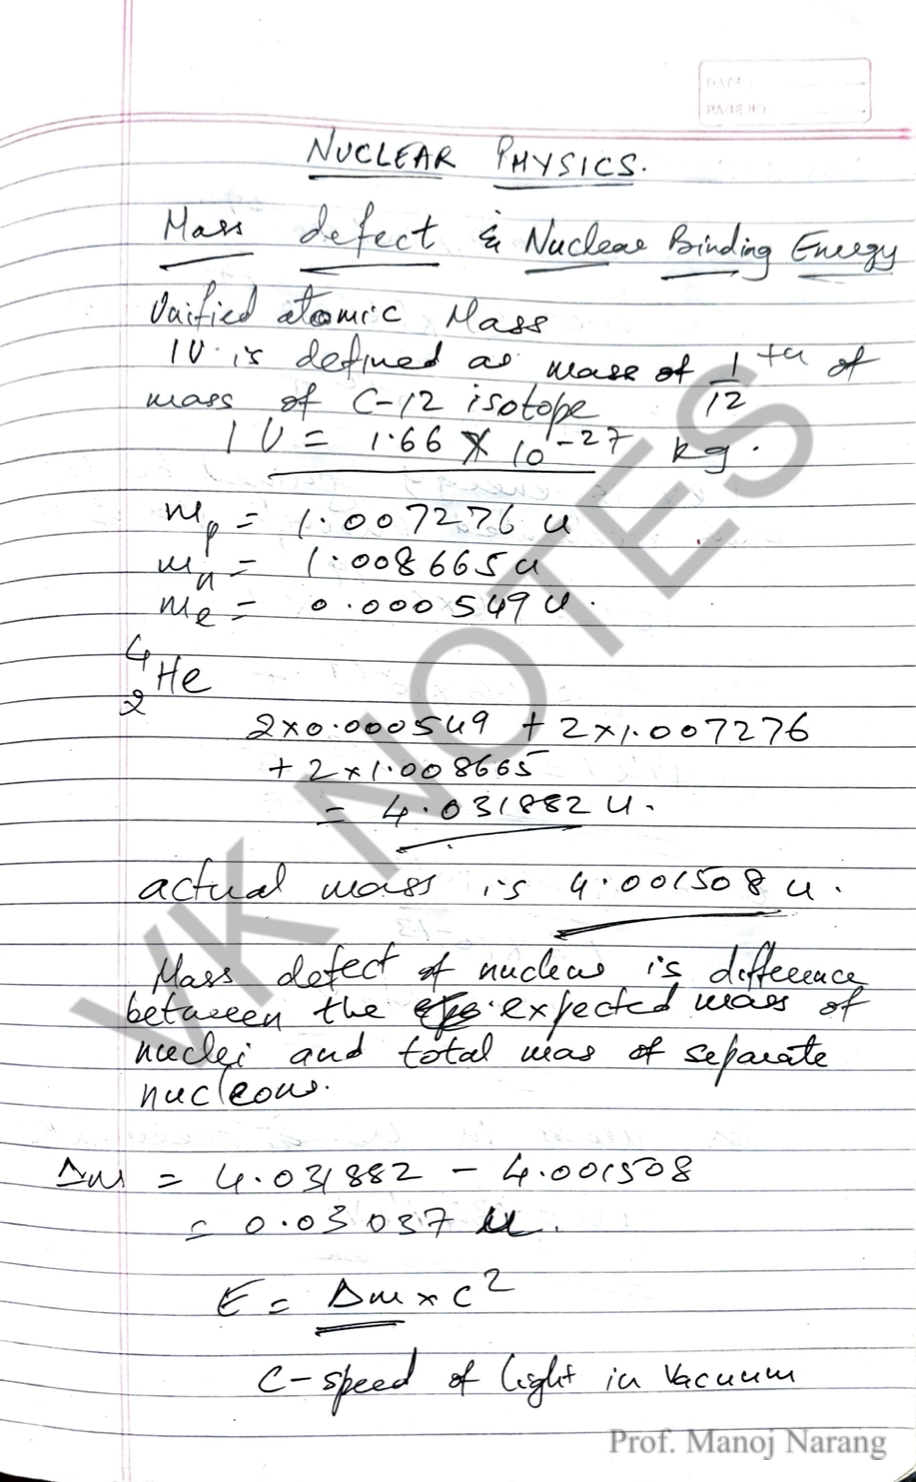 DATE :
PAGE NO.
NUCLEAR PHYSICS.
Mass defect & Nuclear Binding Energy
Unified atomic Mass
1U is defined as mass of 1/12 th of
mass of C-12 isotope
1 U = 1.66 X 10^-27 kg.
mp = 1.007276 u
mn = 1.008665 u
me = 0.000549 u.
4
2 He
2x0.000549 + 2x1.007276
+ 2x1.008665
= 4.031882 u.
actual mass is 4.001508 u.
Mass defect of nucleus is difference
between the expected mass of
nuclei and total mas of separate
nucleons.
Δm = 4.031882 - 4.001508
= 0.03037 u.
E = Δm x c²
C-speed of light in Vacuum
VK NOTES
Prof. Manoj Narang